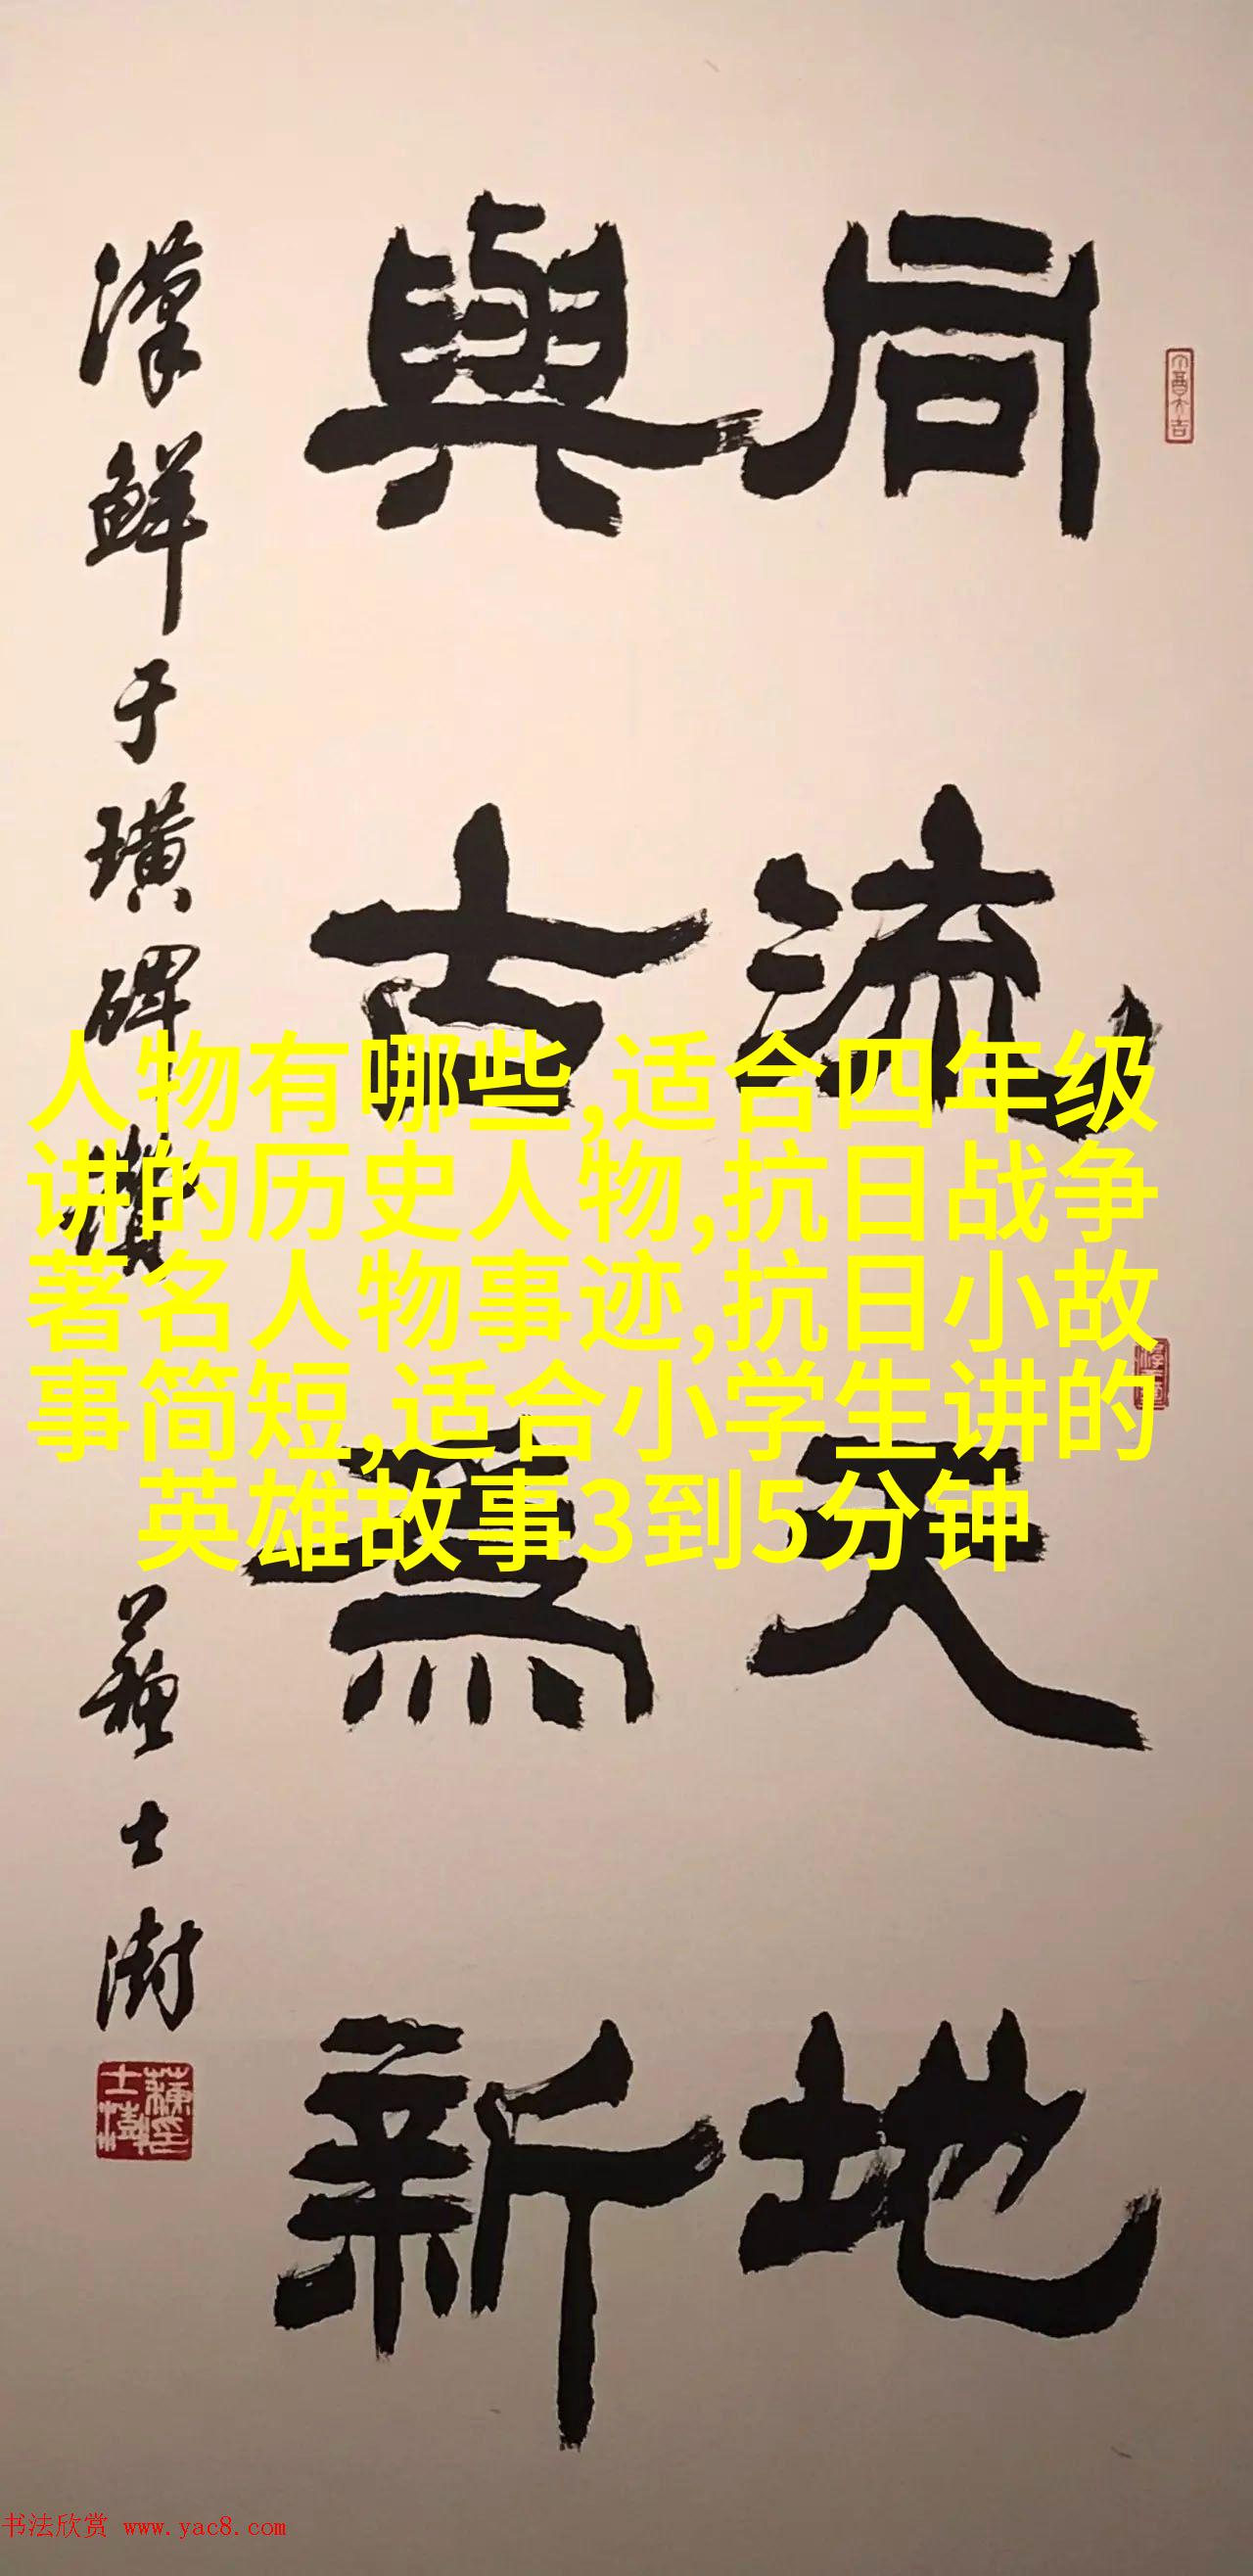 同流天地
與古為新
漢鮮于璜碑
蘇士澍
人物有哪些,适合四年级
讲的历史人物,抗日战争
著名人物事迹,抗日小故
事简短,适合小学生讲的
英雄故事3到5分钟
书法欣赏 www.yac8.com